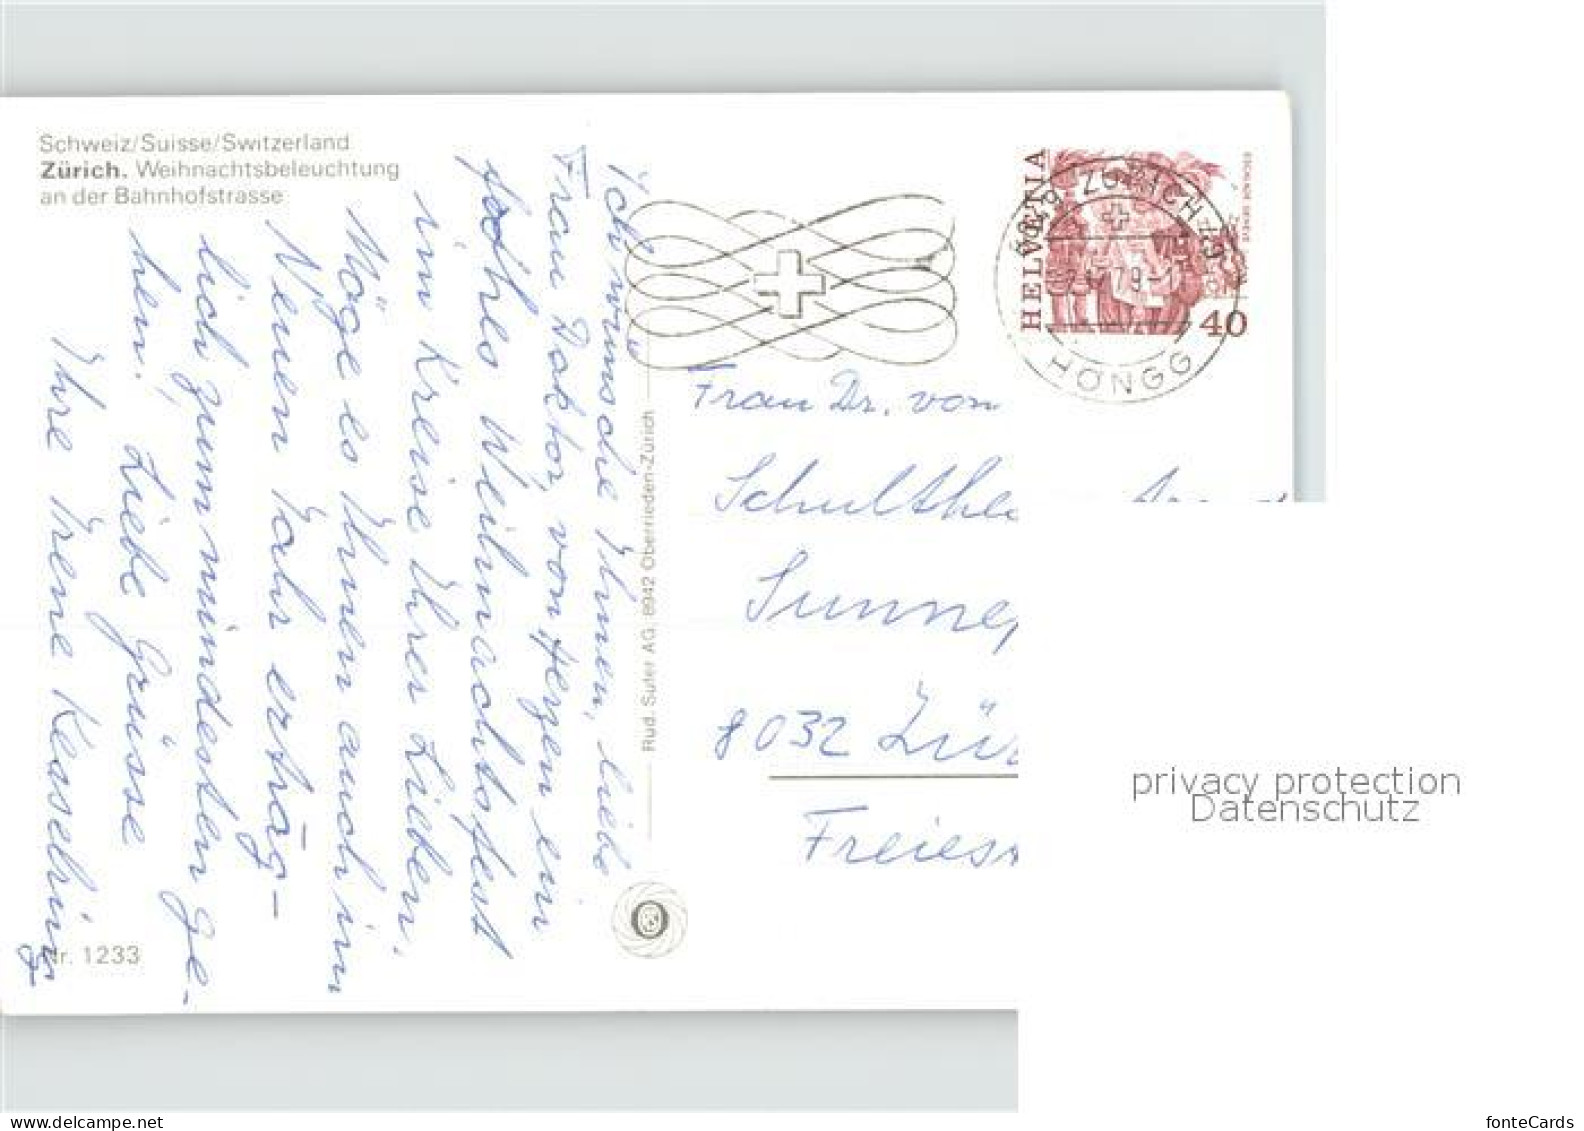 Schweiz/Suisse/Switzerland
Zürich. Weihnachtsbeleuchtung
an der Bahnhofstrasse
Ich wünsche Ihnen, liebe
Frau Doktor, von Herzen ein
frohes Weihnachtsfest
im Kreise Ihrer Lieben.
Möge es Ihnen auch im
Neuen Jahr erträg-
lich zumindesten ge-
hen. Liebe Grüsse
Ihre Irene Kesselring
Nr. 1233
Rud. Suter AG, 8942 Oberrieden-Zürich
HELVETIA
40
8049 ZÜRICH 49
79
HÖNGG
Frau Dr. von
Schulthe
Sunne
8032 Zür
Freies
privacy protection
Datenschutz
fonteCards